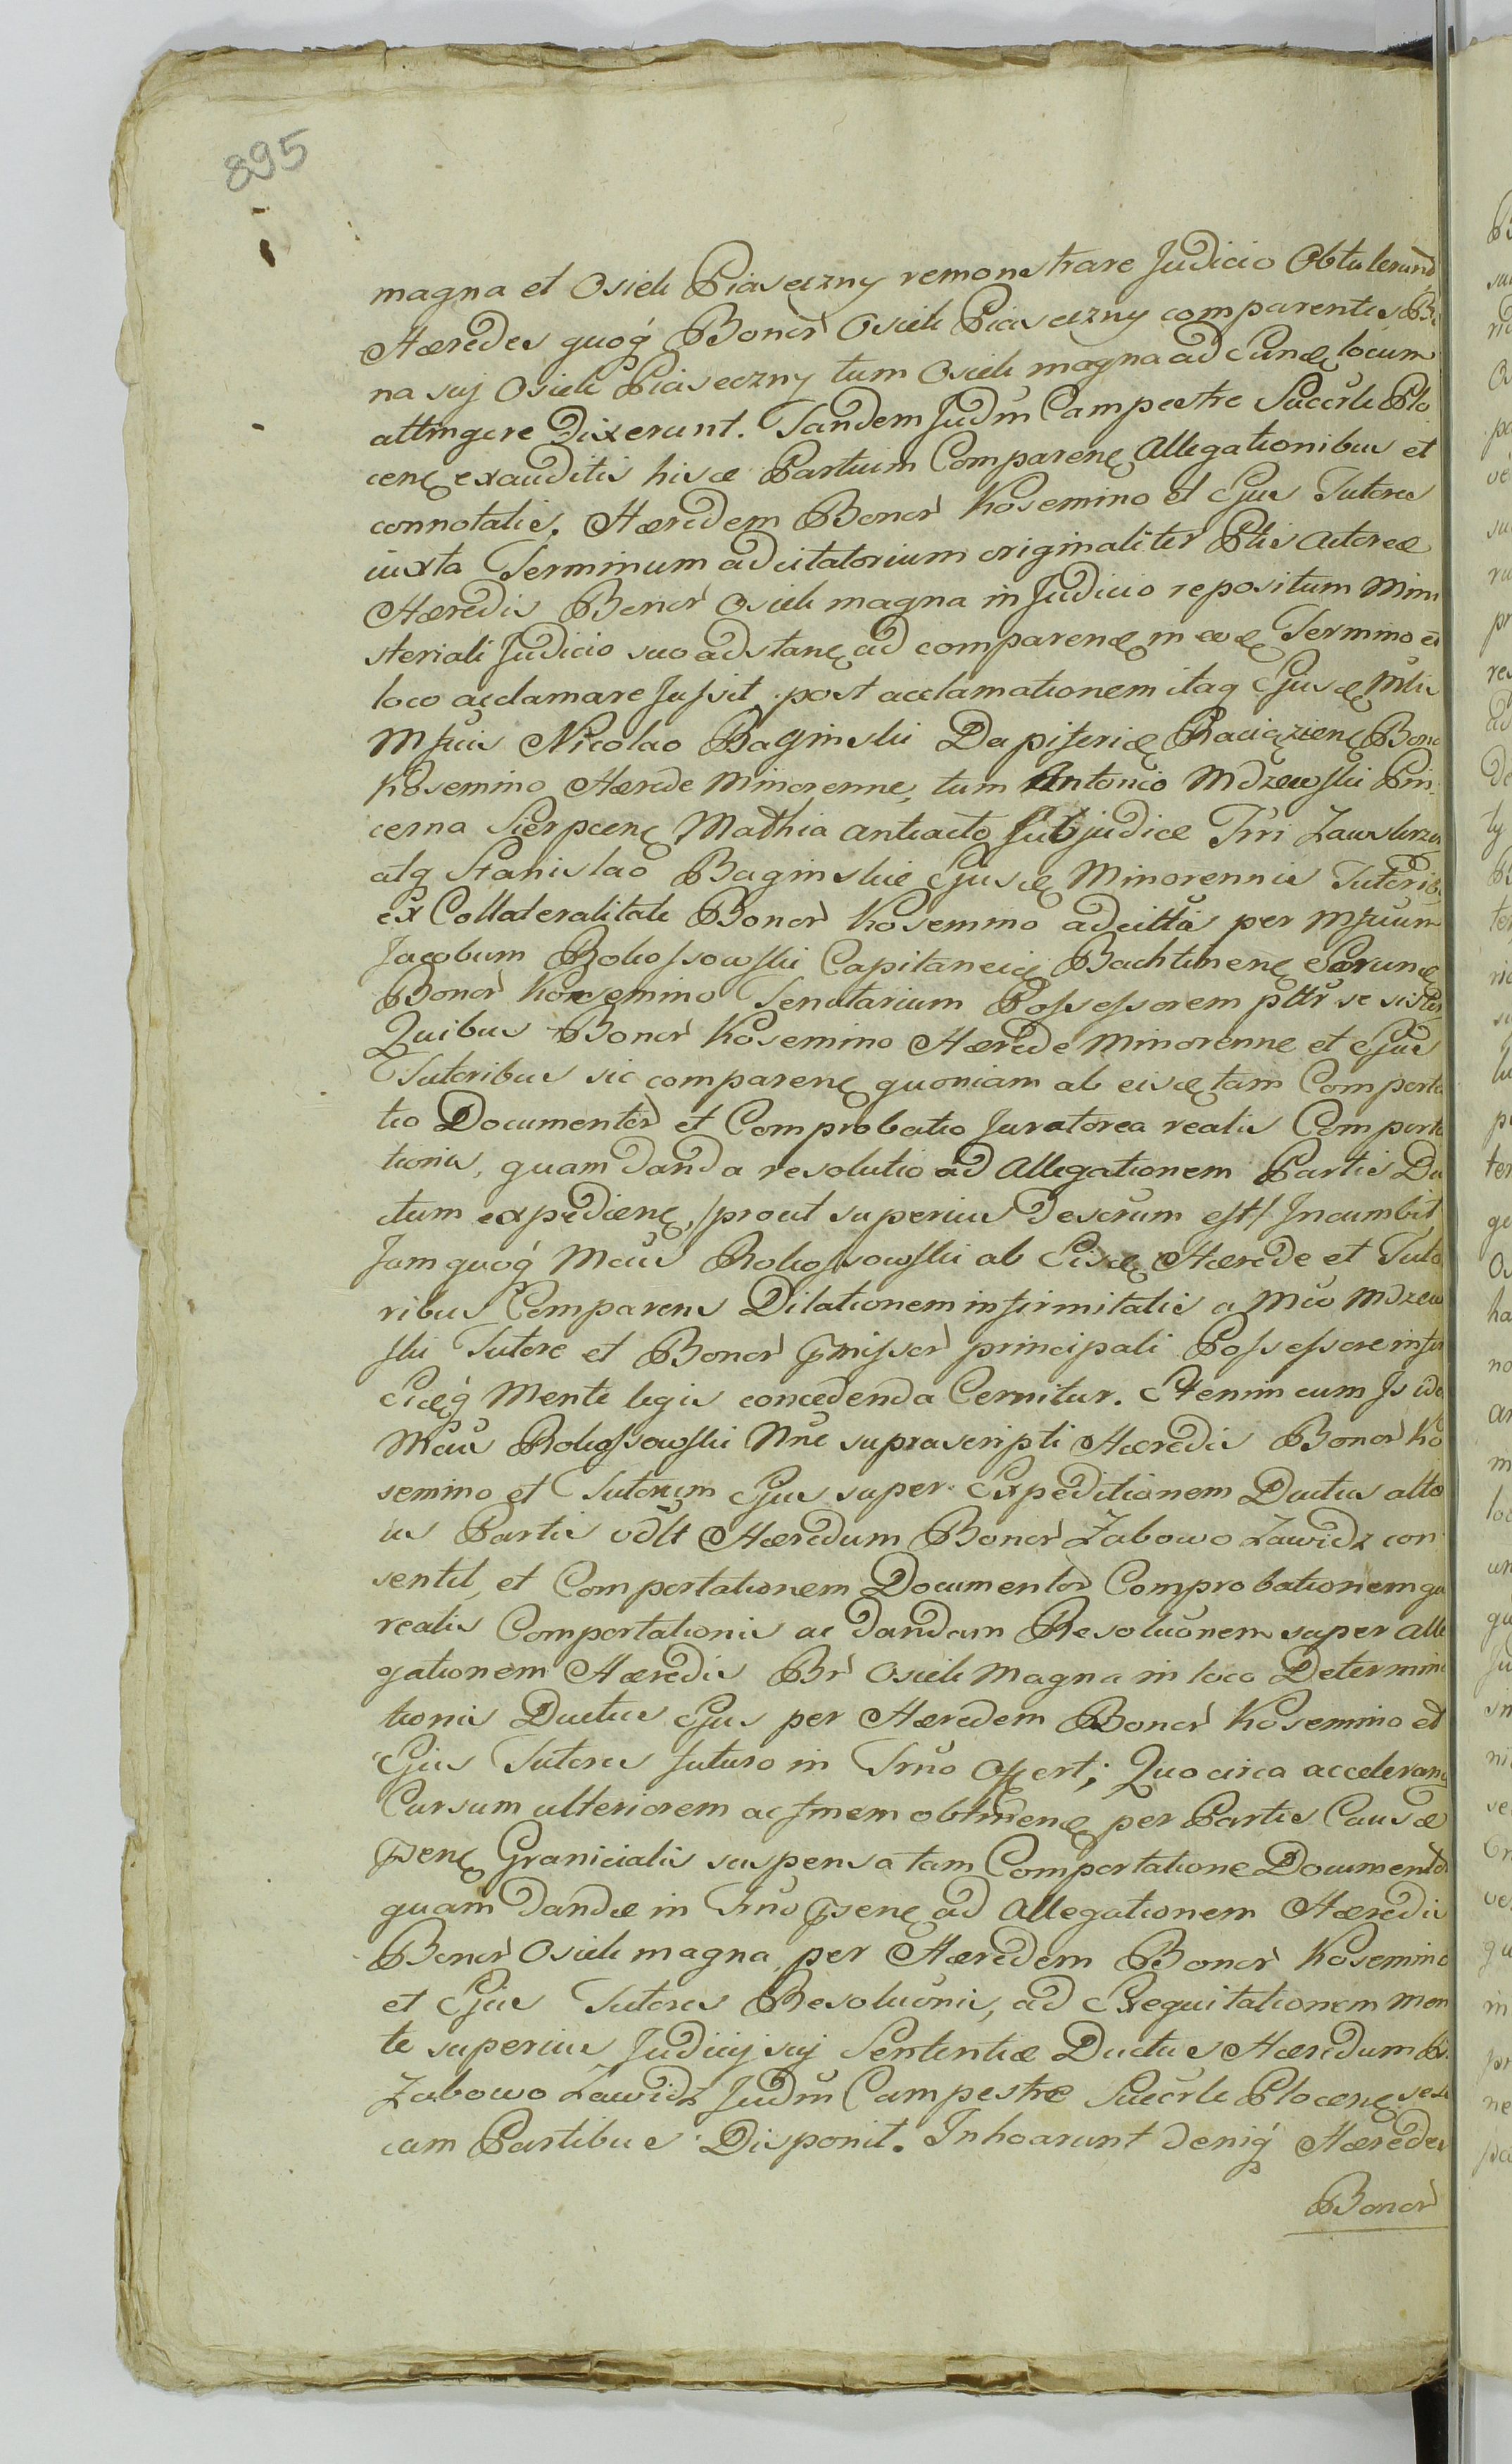 895
magna et Osiek Piaseczny remonstrare Judicio Obtulerund
Hæredes quoq́ Bonor̀ Osiek Piaseczny comparentes
na suj Osiek Piaseczny tum Osiek magna ad locum
attingere Dixerunt. Tandem Judm̃ Campestre Succrle Plo
cenę exauditis hisce Partium Comparenę Allegationibus et
connotatis. Hæredem Bonor̀ Kosemino et Ejus Tutores
iuxta Terminum adcitatorium originaliter Ptis Actoreæ
Hæredis Bonor̀ Osiek magna in Judicio repositum Mini
steriali Judicio suo adstanę ad comparenđ in Termino et
loco acclamare Jussit post acclamationem itaq Ejusđ
Mfcis Nicolao Baginski Dapiferiđ Raciązienę Bono
Kosemino Hærede Minorenne, tum Antonio Mdzewski Pin
cerna Sierpcenę Mathia anteacto Subjudice Trri Zawskrzen
atq Stanislao Baginskie Ejusđ Minorennis Tutorib.
ex Collateralitate Bonor̀ Kosemino adcittis per Mfcum
Jacobum Rokossowski Capitaneiđ Bachtinenę Eorunđ
Bonor̀ Kosemino Tenutarium Possessorem pltr se
Quibus Bonor̀ Kosemino Hærede Minorenne et Ejus
Tutoribus sic comparenę quoniam ab eisđ tam Comporta
tio Documentor̀ et Comprobatio Juratorea realis Comporta
tionis, quam danda resolutio ad Allegationem Partis Du
ctum expedienę, /prout superius descrum est/ Incumbit
Jam quoq́ Mcus Rokossowski ab Eisđ Hærede et Tuto
ribus Comparens Dilationem infirmitatis a Mco Mdzew
ski Tutore et Bonor̀ pmissor̀ principali Possessore
Eiđq́ Mente legis concedenda Cernitur. Etenim cum Is ide
Mcus Rokossowski Nne suprascripti Hæredis Bonor̀ Ko
semino et Tutorum Ejus super Expeditionem Ductus alto
us Partis vdlt Hæredum Bonor̀ Zabowo Zawidz con
sentit, et Comportationem Documentor̀ Comprobationem qu
realis Comportationis ac dandam Resoluonem super alle
gationem Hæredis Br̀ Osiek Magna in loco Determina
tionis Ductus Ejus per Hæredem Bonor̀ Kosemino et
Ejus Tutores futuro in Trno Offert; Quocirca acceleranđ
Cursum ulteriorem ac finem obtinenđ per Partes Causæ
psenę Granicialis suspensa tam Comportatione Documentor̀
quam dandæ in Trno psenę ad Allegationem Hæredis
Bonor̀ Osiek magna, per Hæredem Bonor̀ Kosemino
et Ejus Tutores Resoluonis, ad Exequitationem Men
te superius Judicij suj Sententiæ Ductus Hæredum Br.
Zabowo Zawidz Judm̃ Campestre Succrle Plocenę sese
cum Partibus Disponit. Inhoarunt deniq́ Hæredes
Bonor̀